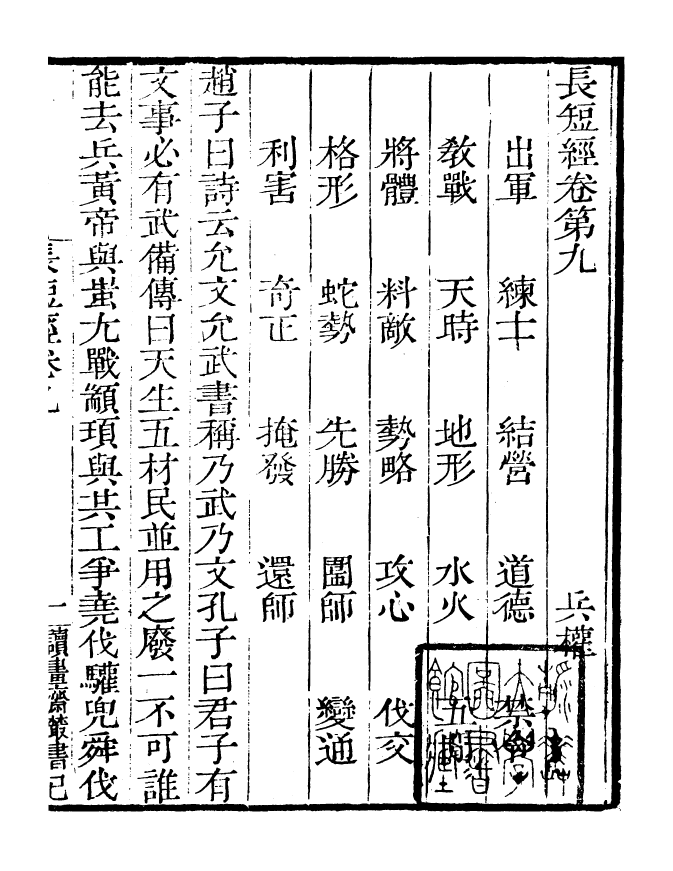 長短經卷第九 兵權
出軍 練士 結營 道德 禁令
敎戰 天時 地形 水火 五間
將體 料敵 勢略 攻心 伐交
格形 蛇勢 先勝 圍師 變通
利害 奇正 掩發 還師
趙子曰詩云允文允武書稱乃武乃文孔子曰君子有
文事必有武備傳曰天生五材民並用之廢一不可誰
能去兵黃帝與蚩尤戰顓頊與共工爭堯伐驩兜舜伐
長短經卷九 一 讀畫齋叢書己